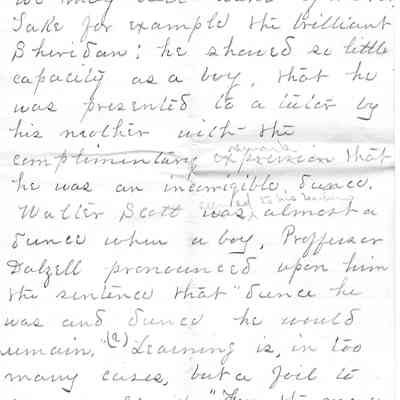 Take for example the brilliant
Sheridan; he showed so little
capacity as a boy, that he
was presented to a tutor by
his mother with the
remark
complimentary expression that
he was an incorrigible dunce.
Walter Scott was almost a
dunce when a boy, Proffessor
Dalzell pronounced upon him
the sentence that "dunce he
was and dunce he would
remain."(2) Learning is, in too
many cases, but a foil to